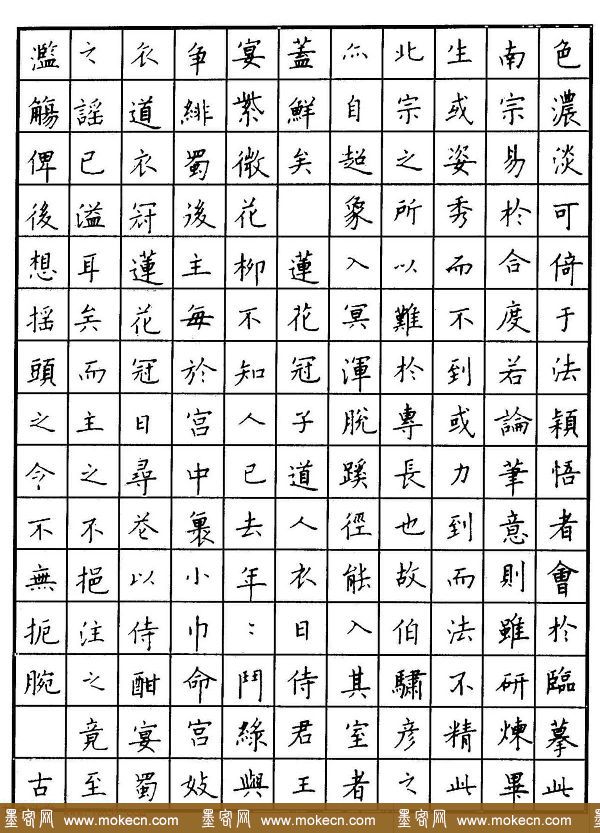 色濃淡可倚于法穎悟者會於臨摹此
南宗易於合度若論筆意則雖研煉畢
生或姿秀而不到或力到而法不精此
北宗之所以難於專長也故伯驌彥之
爪自超象入冥渾脫蹊徑能入其室者
蓋鮮矣 蓮花冠子道人衣日侍君王
宴紫微花柳不知人已去年：鬥綠與
争緋蜀後主每於宮中裹小巾命宮妓
衣道衣冠蓮花冠日尋花以侍酣宴蜀
之謠已溢耳矣而主之不挹注之竟至
濫觴俾後想摇頭之令不無扼腕 古
墨密网 www.mokecn.com 墨密网 www.mokecn.com 墨密网 www.mokecn.com